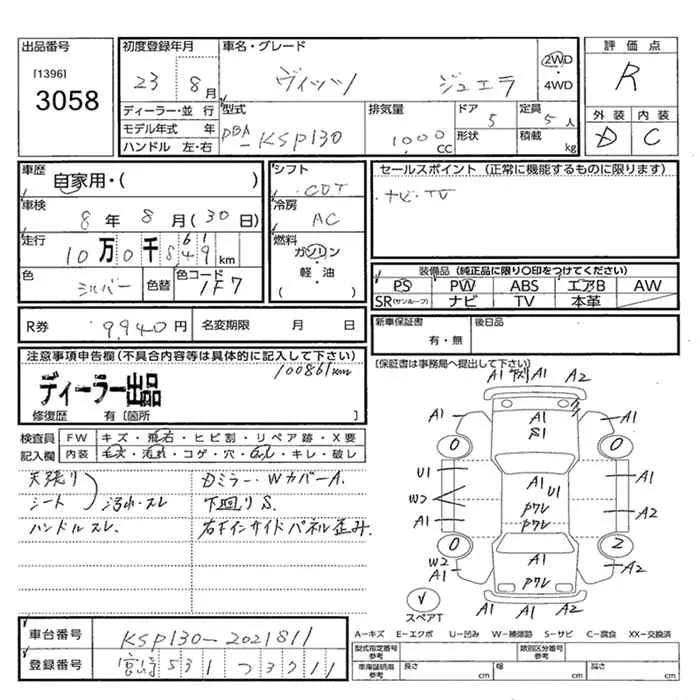 出品番号
[1396]
3058
初度登録年月
23 8月
車名・グレード
ヴィッツ ジュエラ
2WD
・
4WD
評価点
R
外装 内装
D C
ディーラー・並行
モデル年式 年
ハンドル 左・右
型式
DBA-KSP130
排気量
1000
CC
ドア
5
形状
定員
5人
積載
kg
車歴
自家用・( )
車検
8年 8月(30日)
走行
10万0千849km
61
色
シルバー
色替
色コード
1F7
シフト
CDT
冷房
AC
燃料
ガソリン
・
軽・油
( )
セールスポイント (正常に機能するものに限ります)
ナビ・TV
装備品(純正品に限り○印をつけてください)
PS PW ABS エアB AW
SR(サンルーフ) ナビ TV 本革
R券 9,940円 名変期限 月 日
新車保証書
有・無
後日品
[保証書は事務局へ提出して下さい)
注意事項申告欄(不具合内容等は具体的に記入して下さい)
100861km
ディーラー出品
修復歴 有[箇所 ]
検査員
記入欄
FW キズ・飛石・ヒビ割・リペア跡・X要
内装 キズ・汚れ・コゲ・穴・ハガレ・キレ・破レ
天張り
シート
汚れ・スレ
ハンドルスレ.
Dミラー・WカバーA.
下回りS.
右下インサイドパネル歪み.
A1 A1 A2
A1 A1 A1
S1
0 0
U1 A1
W2 U1
A1 A2
Pクレ
PクレA1
0 2
W2 A1 A2
A1 Pクレ A1
A1 A1 A1
スペアT
A－キズ E－エクボ U－凹み W－補修跡 S－サビ C－腐食 XX－交換済
車台番号
KSP130-2021811
登録番号
宮崎 531 つ 3211
型式指定番号
参考
類別区分番号
参考
車庫証明用
参考
長さ
cm
幅
cm
高さ
cm